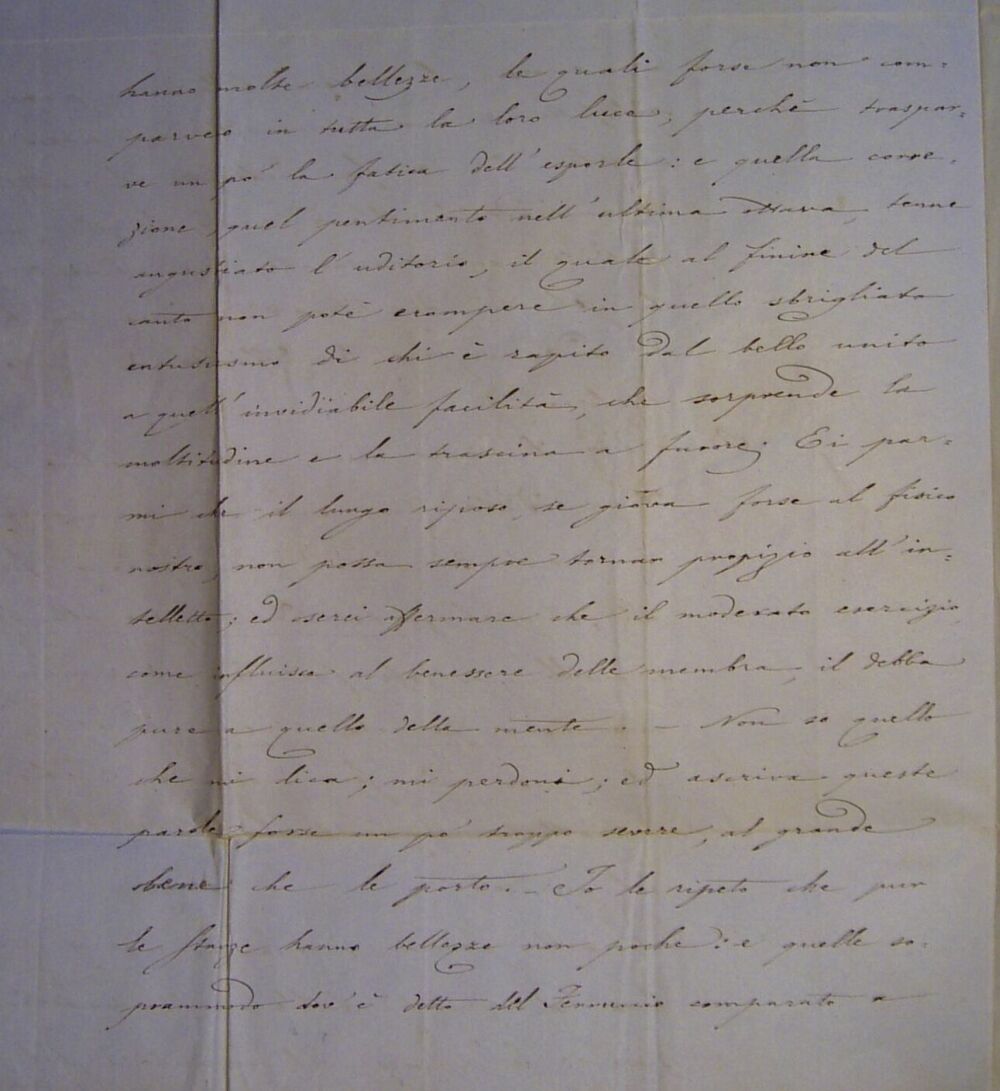 hanno molte bellezze, le quali forse non com-
parvero in tutta la loro luce, perchè traspar-
ve un po' la fatica dell'esporle: e quella corre-
zione, quel pentimento nell'ultima ottava, tenne
angustiato l'uditorio, il quale al finire del
canto non potè erompere in quello sbrigliato
entusiasmo di chi è rapito dal bello unito
a quell'invidiabile facilità, che sorprende la
moltitudine e la trascina a furore. Ei par-
mi che il lungo riposo, se giova forse al fisico
nostro, non possa sempre tornar propizio all'in-
telletto; ed oserei affermare che il moderato esercizio,
come influisce al benessere delle membra, il debba
pure a quello della mente. - Non so quello
che mi dica; mi perdoni; ed ascriva queste
parole forse un po' troppo severe, al grande
bene che le porto. - Io le ripeto che pur
le stanze hanno bellezze non poche: e quelle so-
prammodo dov'è detto del comparato a